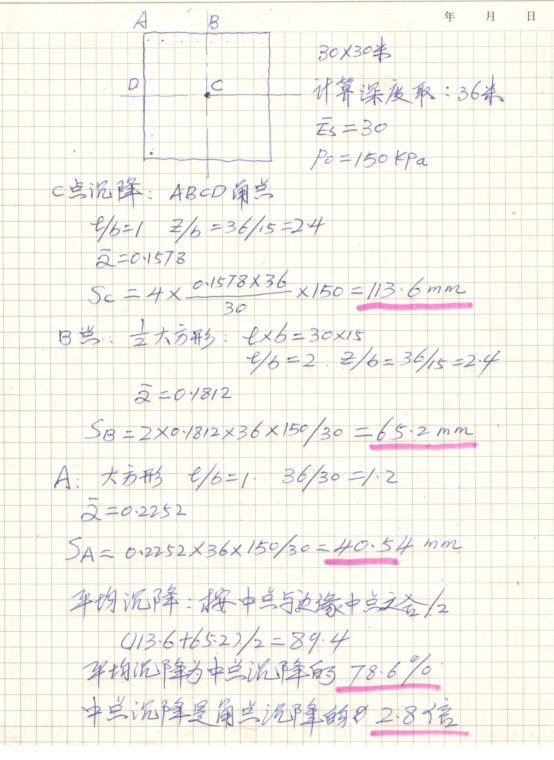 年 月 日
A B
D C
30×30米
计算深度取：36米
Ēs=30
Po=150 KPa
C点沉降：ABCD角点
l/b=1 z/b=36/15=2.4
ᾱ=0.1578
Sc=4×(0.1578×36)/30×150=113.6mm
B点：½大方形：l×b=30×15
l/b=2 z/b=36/15=2.4
ᾱ=0.1812
SB=2×0.1812×36×150/30=65.2mm
A：大方形 l/b=1 36/30=1.2
ᾱ=0.2252
SA=0.2252×36×150/30=40.54 mm
平均沉降：按中点与边缘中点之合/2
(113.6+65.2)/2=89.4
平均沉降为中点沉降的78.6%
中点沉降是角点沉降的 2.8倍